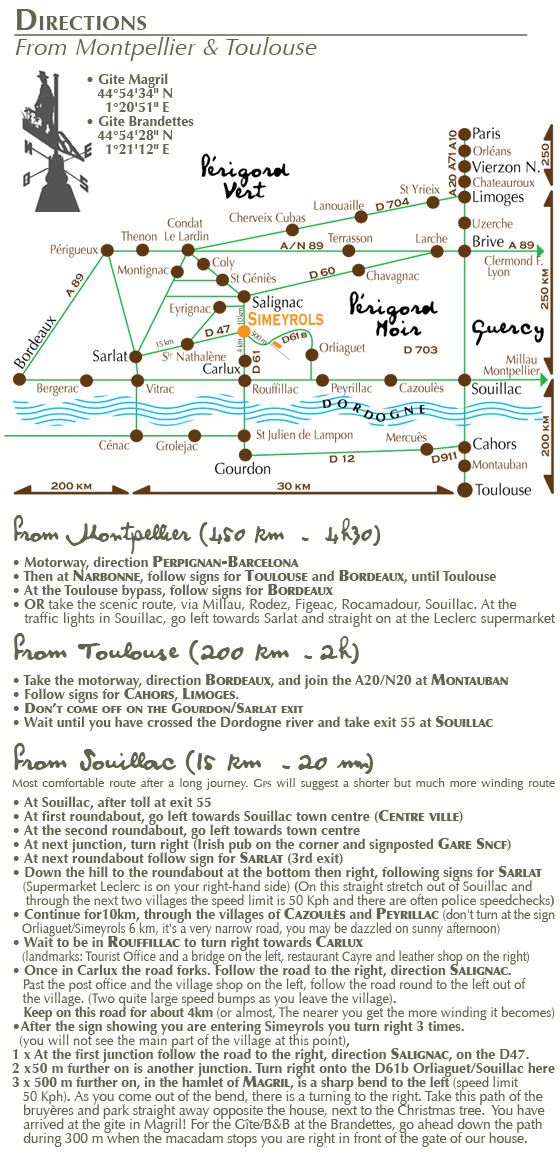 DIRECTIONS
From Montpellier & Toulouse
• Gite Magril
44°54'34" N
1°20'51" E
• Gite Brandettes
44°54'28" N
1°21'12" E
E
O
G
S
Périgord
Vert
Paris
Orléans
Vierzon N.
Chateauroux
Limoges
A20 A71 A10
250
St Yrieix
D 704
Lanouaille
Cherveix Cubas
Uzerche
Condat
Le Lardin
Thenon
Périgueux
A/N 89
Terrasson
Larche
Brive
A 89
Clermond F.
Lyon
Coly
Montignac
St Géniès
D 60
Chavagnac
A 89
Salignac
Eyrignac
10 km
SIMEYROLS
Périgord
Noir
250 KM
Quercy
D 47
500 m
D61B
15 km
Orliaguet
D 703
Sarlat
Ste Nathalène
4 km
D 61
Carlux
Bordeaux
Millau
Montpellier
Bergerac
Vitrac
Rouffillac
Peyrillac
Cazoulès
Souillac
DORDOGNE
200 KM
Cénac
Grolejac
St Julien de Lampon
Mercuès
Cahors
Gourdon
D 12
D911
Montauban
200 KM
30 KM
Toulouse
From Montpellier (450 km - 4h30)
• Motorway, direction PERPIGNAN-BARCELONA
• Then at NARBONNE, follow signs for TOULOUSE and BORDEAUX, until Toulouse
• At the Toulouse bypass, follow signs for BORDEAUX
• OR take the scenic route, via Millau, Rodez, Figeac, Rocamadour, Souillac. At the
traffic lights in Souillac, go left towards Sarlat and straight on at the Leclerc supermarket
From Toulouse (200 km - 2h)
• Take the motorway, direction BORDEAUX, and join the A20/N20 at MONTAUBAN
• Follow signs for CAHORS, LIMOGES.
• DON'T COME OFF ON THE GOURDON/SARLAT EXIT
• Wait until you have crossed the Dordogne river and take exit 55 at SOUILLAC
From Souillac (15 km - 20 mn)
Most comfortable route after a long journey. GPS will suggest a shorter but much more winding route
• At Souillac, after toll at exit 55
• At first roundabout, go left towards Souillac town centre (CENTRE VILLE)
• At the second roundabout, go left towards town centre
• At next junction, turn right (Irish pub on the corner and signposted GARE SNCF)
• At next roundabout follow sign for SARLAT (3rd exit)
• Down the hill to the roundabout at the bottom then right, following signs for SARLAT
(Supermarket Leclerc is on your right-hand side) (On this straight stretch out of Souillac and
through the next two villages the speed limit is 50 Kph and there are often police speedchecks)
• Continue for10km, through the villages of CAZOULÈS and PEYRILLAC (don't turn at the sign
Orliaguet/Simeyrols 6 km, it's a very narrow road, you may be dazzled on sunny afternoon)
• Wait to be in ROUFFILLAC to turn right towards CARLUX
(landmarks: Tourist Office and a bridge on the left, restaurant Cayre and leather shop on the right)
• Once in Carlux the road forks. Follow the road to the right, direction SALIGNAC.
Past the post office and the village shop on the left, follow the road round to the left out of
the village. (Two quite large speed bumps as you leave the village).
Keep on this road for about 4km (or almost, The nearer you get the more winding it becomes)
•After the sign showing you are entering Simeyrols you turn right 3 times.
(you will not see the main part of the village at this point),
1 x At the first junction follow the road to the right, direction SALIGNAC, on the D47.
2 x50 m further on is another junction. Turn right onto the D61b Orliaguet/Souillac here
3 x 500 m further on, in the hamlet of MAGRIL, is a sharp bend to the left (speed limit
50 Kph). As you come out of the bend, there is a turning to the right. Take this path of the
bruyères and park straight away opposite the house, next to the Christmas tree. You have
arrived at the gite in Magril! For the Gîte/B&B at the Brandettes, go ahead down the path
during 300 m when the macadam stops you are right in front of the gate of our house.